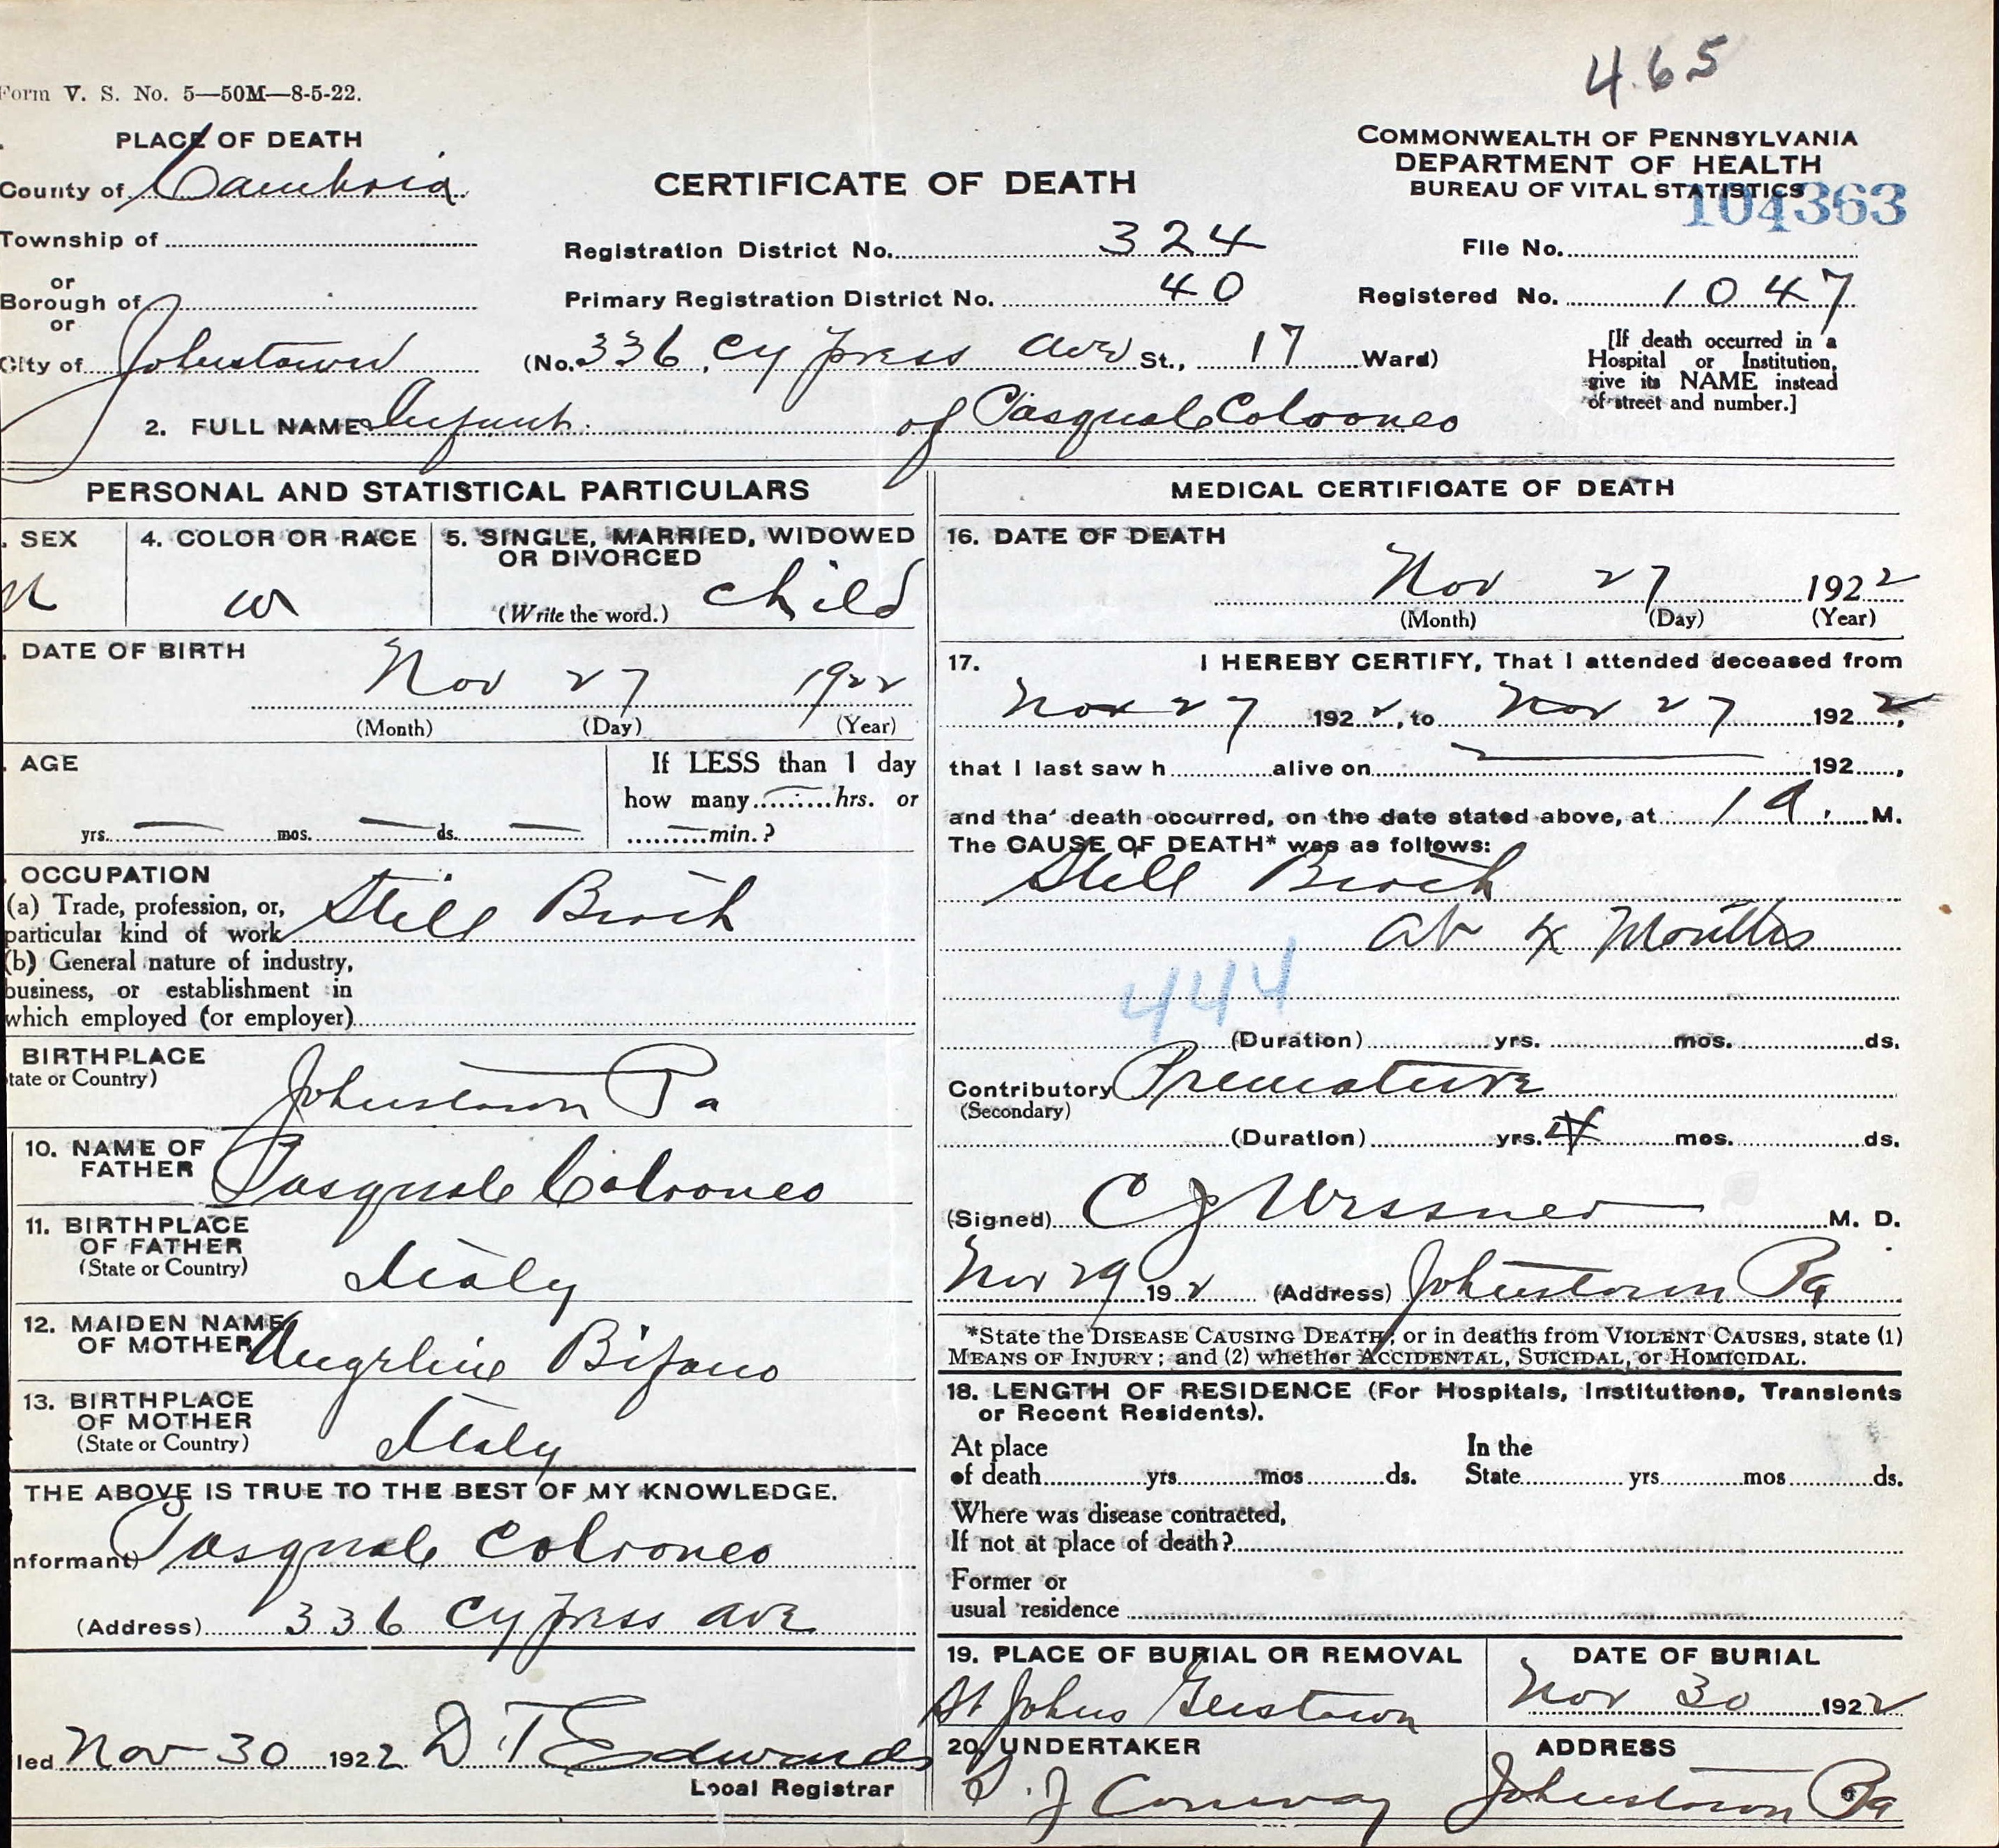 465
Form V. S. No. 5—50M—8-5-22.
PLACE OF DEATH
County of Cambria
Township of
or
Borough of
or
City of Johnstown
CERTIFICATE OF DEATH
Registration District No. 324
Primary Registration District No. 40
(No. 336, Cypress Ave St., 17 Ward)
COMMONWEALTH OF PENNSYLVANIA
DEPARTMENT OF HEALTH
BUREAU OF VITAL STATISTICS
104363
File No.
Registered No. 1047
[If death occurred in a
Hospital or Institution,
give its NAME instead
of street and number.]
2. FULL NAME Infant of Pasquale
PERSONAL AND STATISTICAL PARTICULARS
. SEX
M
4. COLOR OR RACE
W
5. SINGLE, MARRIED, WIDOWED
OR DIVORCED
(Write the word.) Child
. DATE OF BIRTH
Nov 27 1922
(Month) (Day) (Year)
. AGE
yrs. — mos. — ds. —
If LESS than 1 day
how many — hrs. or
— min.?
. OCCUPATION
(a) Trade, profession, or,
particular kind of work Still Birth
(b) General nature of industry,
business, or establishment in
which employed (or employer)
BIRTHPLACE
tate or Country)
Johnstown Pa
10. NAME OF
FATHER
Pasquale
11. BIRTHPLACE
OF FATHER
(State or Country)
Italy
12. MAIDEN NAME
OF MOTHER Angeline Bifano
13. BIRTHPLACE
OF MOTHER
(State or Country)
Italy
THE ABOVE IS TRUE TO THE BEST OF MY KNOWLEDGE.
nformant) Pasquale
(Address) 336 Cypress Ave
led Nov 30 1922 D T Edwards
Local Registrar
MEDICAL CERTIFICATE OF DEATH
16. DATE OF DEATH
Nov 27 1922
(Month) (Day) (Year)
17. I HEREBY CERTIFY, That I attended deceased from
Nov 27 1922, to Nov 27 1922,
that I last saw h alive on — 192 ,
and tha' death occurred, on the date stated above, at 1 a. M.
The CAUSE OF DEATH* was as follows:
Still Birth
at 4 Months
444
(Duration) yrs. mos. ds.
Contributory Premature
(Secondary)
(Duration) yrs. 4 mos. ds.
(Signed) C J M. D.
Nov 29 192 (Address) Johnstown Pa
*State the DISEASE CAUSING DEATH; or in deaths from VIOLENT CAUSES, state (1)
MEANS OF INJURY; and (2) whether ACCIDENTAL, SUICIDAL, or HOMICIDAL.
18. LENGTH OF RESIDENCE (For Hospitals, Institutions, Transients
or Recent Residents).
At place
of death yrs mos ds.
In the
State yrs mos ds.
Where was disease contracted,
If not at place of death?
Former or
usual residence
19. PLACE OF BURIAL OR REMOVAL
St Johns Geistown
DATE OF BURIAL
Nov 30 1922
20. UNDERTAKER
J Conway
ADDRESS
Johnstown Pa